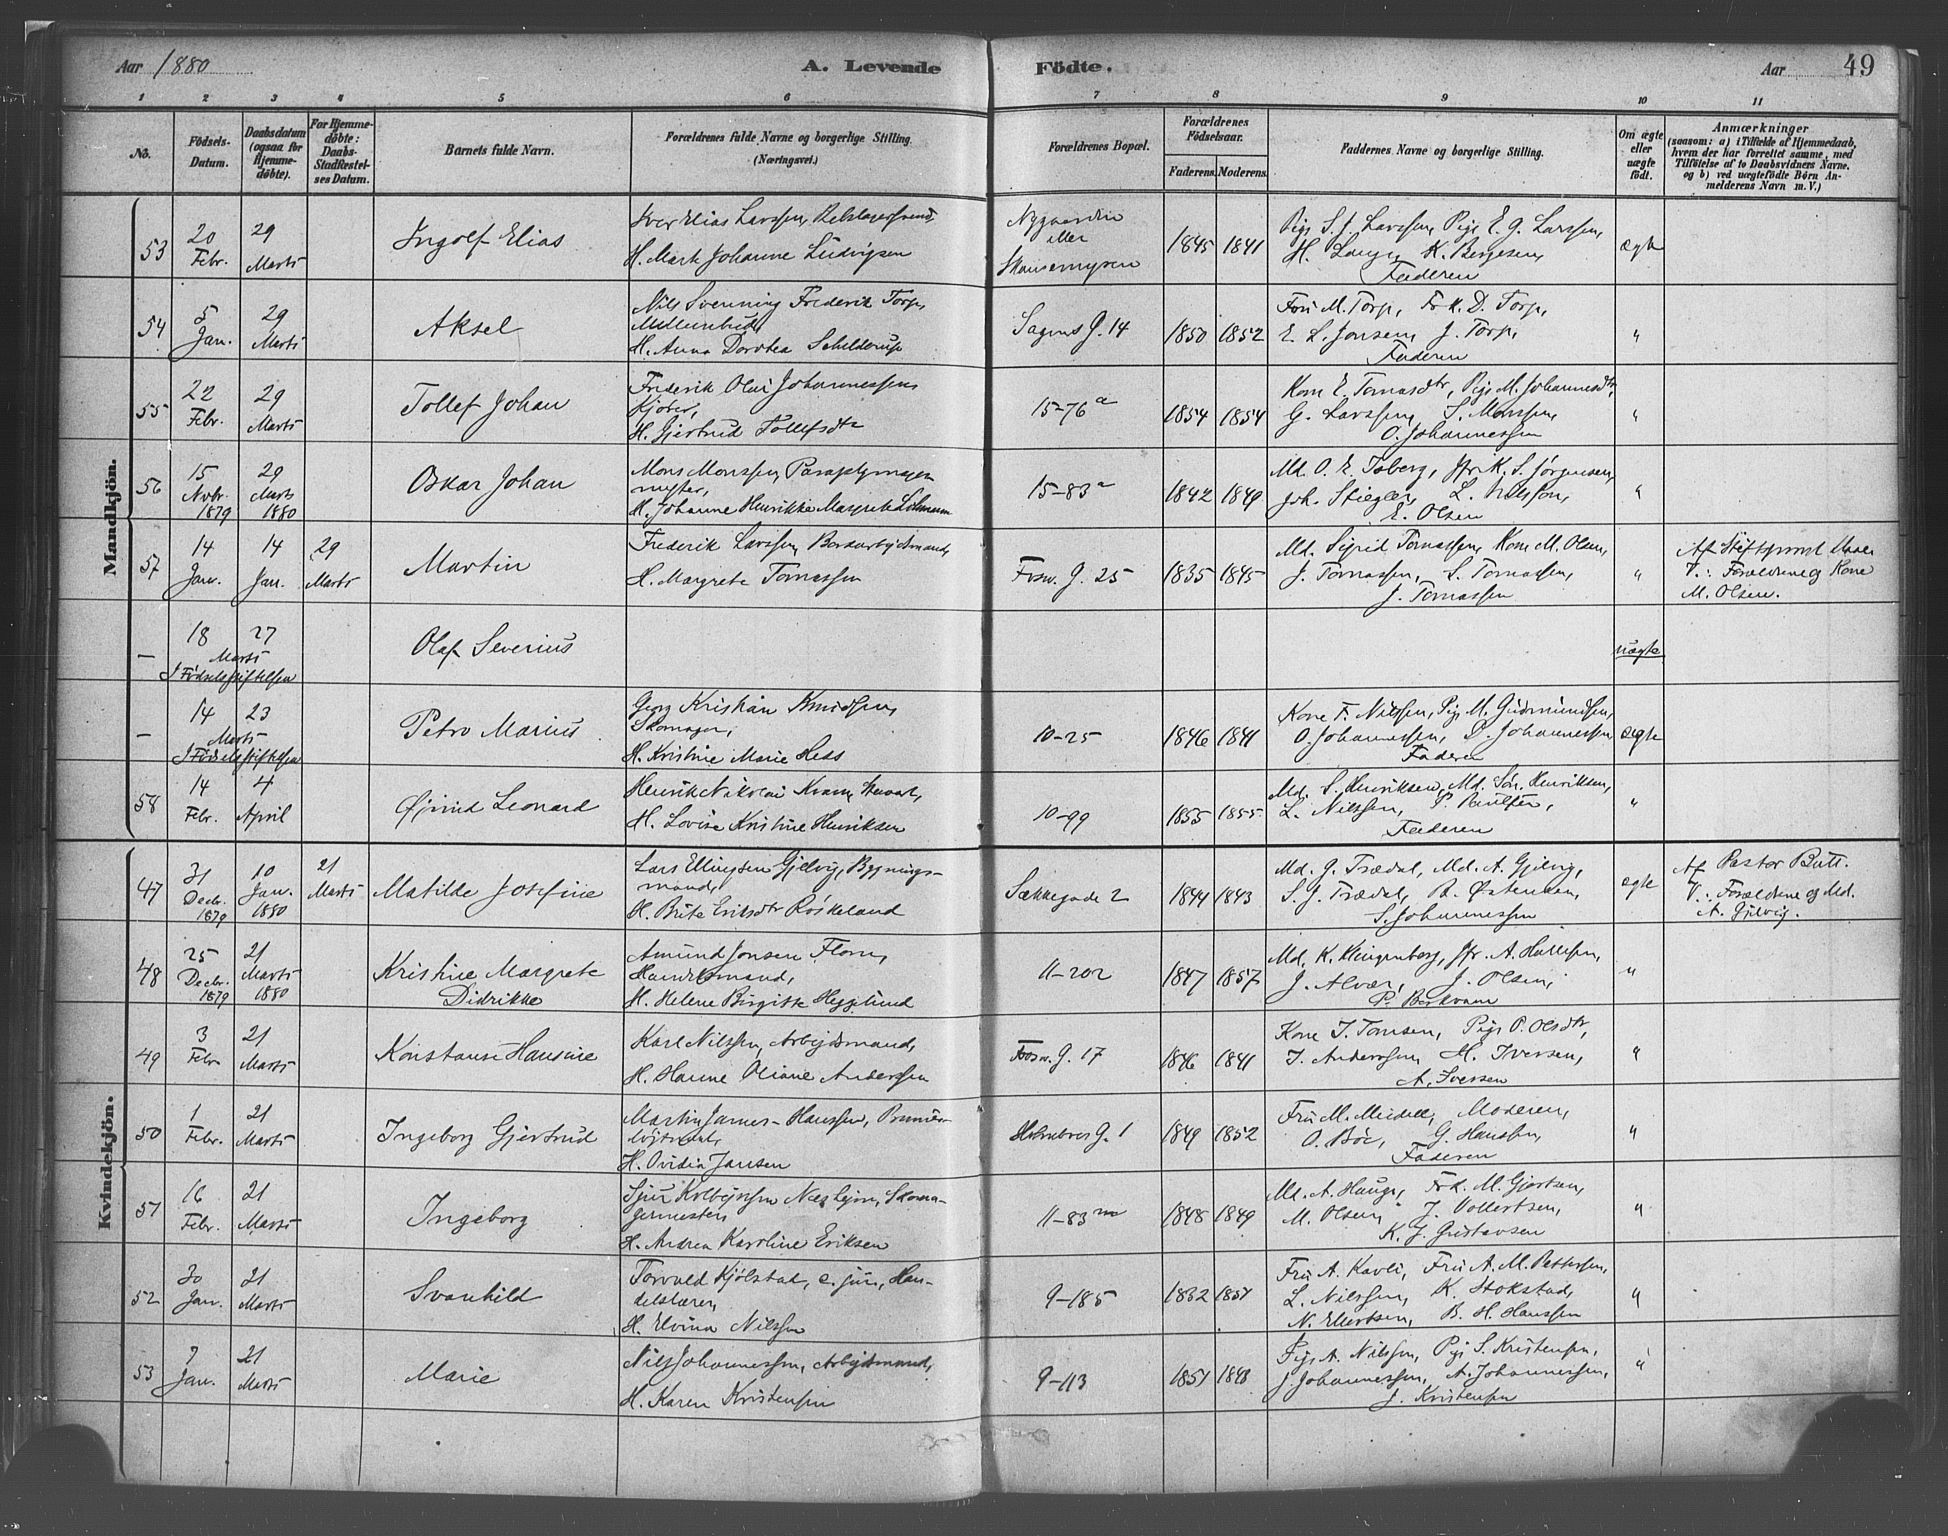 Aar 1880
A. Levende Födte.
Aar
49
1 2 3 4 5 6 7 8 9 10 11
No.
Födsels-Datum.
Daabsdatum (ogsaa for Hjemmedöbte).
For Hjemmedöbte: Daabs-Stadfæstelses Datum.
Barnets fulde Navn.
Forældrenes fulde Navne og borgerlige Stilling. (Næringsvei.)
Forældrenes Bopæl.
Forældrenes Födselsaar.
Faderens. Moderens.
Faddernes Navne og borgerlige Stilling.
Om ægte eller uægte födt.
Anmærkninger (saasom: a) i Tilfælde af Hjemmedaab, hvem der har forrettet samme, med Tilföielse af to Daabsvidners Navne, og b) ved uægtefödte Börn Anmelderens Navn m. V.)
Mandkjön.
53 20 Febr. 29 Marts Ingolf Elias
Iver Elias Larssen,
H. Mart Johanne Ludvigsen
Nygaarden eller Skansemyren 1845 1841
Pige S. J. Larssen, Pige E. G. Larssen,
H. Lange, K. Bergesen,
Faderen
ægte
54 5 Jan. 29 Marts Aksel
Nils Svenning Frederik Torp,
H. Anna Dorotea Schilderup
Sagens G. 14 1850 1852
Fru M. Torp, Frk. D. Torp,
E. L. Jensen, J. Torp,
Faderen
"
55 22 Febr. 29 Marts Tollef Johan
Frederik Olai Johannessen,
H. Gjertrud Tollefsdtr
15-76a 1854 1854
Kone E. Tomasdtr, Pige M. Johannesdtr,
G. Larssen, S. Monssen,
O. Johannessen
"
56 15 Novbr. 1879 29 Marts 1880 Oskar Johan
Mons Monssen, Paraplymagermester,
H. Johanne Henrikke Margrete Lohmann
15-83a 1842 1846
Md. O. E. Toberg, Jfr K. S. Jørgensen,
Joh. Stiegler, L. Nilssen,
E. Olsen
"
57 14 Jan. 14 Jan. 29 Marts Martin
Frederik Larssen,
H. Margrete Tomassen
Fosw. G. 25 1835 1845
Md. Sigrid Tomassen, Kone M. Olsen,
J. Tomassen, S. Tomassen,
J. Tomassen
"
Af Stiftsprovst
V.: Forældrene og Kone
M. Olsen.
— 18 27 Marts Olaf Severius
I Fødselsstiftelsen
uægte
— 14 23 Marts Petro Marius
I Fødselsstiftelsen
Georg Kristian Knudsen,
Skomager,
H. Kristine Marie Hess
10-25 1846 1841
Kone F. Nilssen, Pige M. Gudmundsen,
O. Johannessen, D. Johannessen,
Faderen
ægte
58 14 Febr. 4 April Øjvind Leonard
Henrik Nikolai Kvam,
H. Lovise Kristine Henriksen
10-99 1855 1855
Md. S. Henriksen, Md. Sør. Henriksen,
L. Nilssen, P. Paulsen,
Faderen
"
Kvindekjön.
47 31 Decbr. 1879 10 Jan. 1880 21 Marts Matilde Josefine
Lars Ellingsen Gjelvig, Bygningsmand,
H. Brite Eriksdtr Røskeland
Sækkegade 2 1844 1843
Md. G. Trædal, Md. A. Gjelvig,
S. J. Trædal, B. Østensen,
S. Johannessen
ægte
Af Pastor Butt.
V.: Forældrene og Md.
A. Gjelvig.
48 25 Decbr. 1879 21 Marts 1880 Kristine Margrete
Didrikke
Amund Jonsen Flom,
Handelsmand,
H. Helene Birgitte Heggelund
11-202 1847 1857
Md. K. Klingenberg, Jfr. A. Hallesen,
J. Alvær, J. Olsen,
P. Berkvam
"
49 3 Febr 21 Marts Konstanse Hansine
Karl Nilssen, Arbejdsmand,
H. Hanne Oliane Anderssen
Fosw. G. 17 1846 1841
Kone J. Tomsen, Pige P. Olsdtr,
J. Anderssen, H. Iversen,
A. Iversen
"
50 1 Febr. 21 Marts Ingeborg Gjertrud
Martin James Hanssen,
H. Ovidia Jansen
G. 1 1849 1852
Fru M. Meidell, Moderen,
O. Bøe, G. Hanssen,
Faderen
"
51 16 Febr. 21 Marts Ingeborg
Sjur Kolbejnsen Næshejm, Skomagermester,
H. Andrea Karoline Eriksen
11-83 1848 1849
Md. A. Hauge, Frk. M. Gjertsen,
M. Olsen, J. Vollertsen,
K. J. Gustavsen
"
52 30 Jan. 21 Marts Svanhild
Torvald Kjølstad, c. jur., Handelslærer,
H. Elvina Nilssen
9-185 1832 1851
Fru A. Kavli, Fru A. M. Pettersen,
L. Nilssen, K. Stokstad,
N. Ellertsen, B. H. Hanssen
"
53 7 Jan. 21 Marts Marie
Nils Johannessen, Arbejdsmand,
H. Karen Kristensen
9-113 1851 1848
Pige A. Nilssen, Pige S. Kristensen,
J. Johannessen, A. Johannessen,
J. Kristensen
"